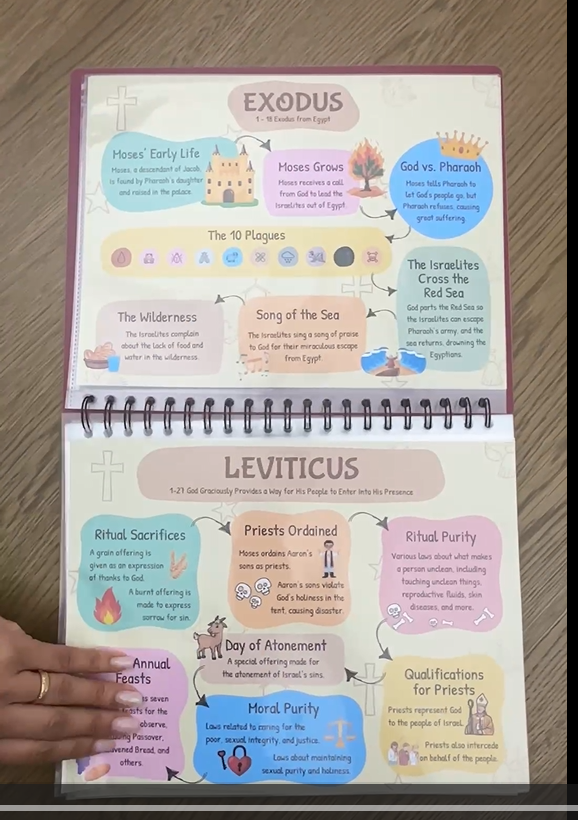 EXODUS
1 - 18 Exodus from Egypt
Moses' Early Life
Moses, a descendant of Jacob,
is found by Pharaoh's daughter
and raised in the palace.
Moses Grows
Moses receives a call
from God to lead the
Israelites out of Egypt.
God vs. Pharaoh
Moses tells Pharaoh to
let God's people go, but
Pharaoh refuses, causing
great suffering.
The 10 Plagues
The Israelites
Cross the
Red Sea
God parts the Red Sea so
the Israelites can escape
Pharaoh's army, and the
sea returns, drowning the
Egyptians.
Song of the Sea
The Israelites sing a song of praise
to God for their miraculous escape
from Egypt.
The Wilderness
The Israelites complain
about the lack of food and
water in the wilderness.
LEVITICUS
1-27 God Graciously Provides a Way for His People to Enter Into His Presence
Ritual Sacrifices
A grain offering is
given as an expression
of thanks to God.
A burnt offering is
made to express
sorrow for sin.
Priests Ordained
Moses ordains Aaron's
sons as priests.
Aaron's sons violate
God's holiness in the
tent, causing disaster.
Ritual Purity
Various laws about what makes
a person unclean, including
touching unclean things,
reproductive fluids, skin
diseases, and more.
Qualifications
for Priests
Priests represent God
to the people of Israel.
Priests also intercede
on behalf of the people.
Day of Atonement
A special offering made for
the atonement of Israel's sins.
Moral Purity
Laws related to caring for the
poor, sexual integrity, and justice.
Laws about maintaining
sexual purity and holiness.
Annual
Feasts
seven
for the
observe,
Passover,
Bread, and
others.